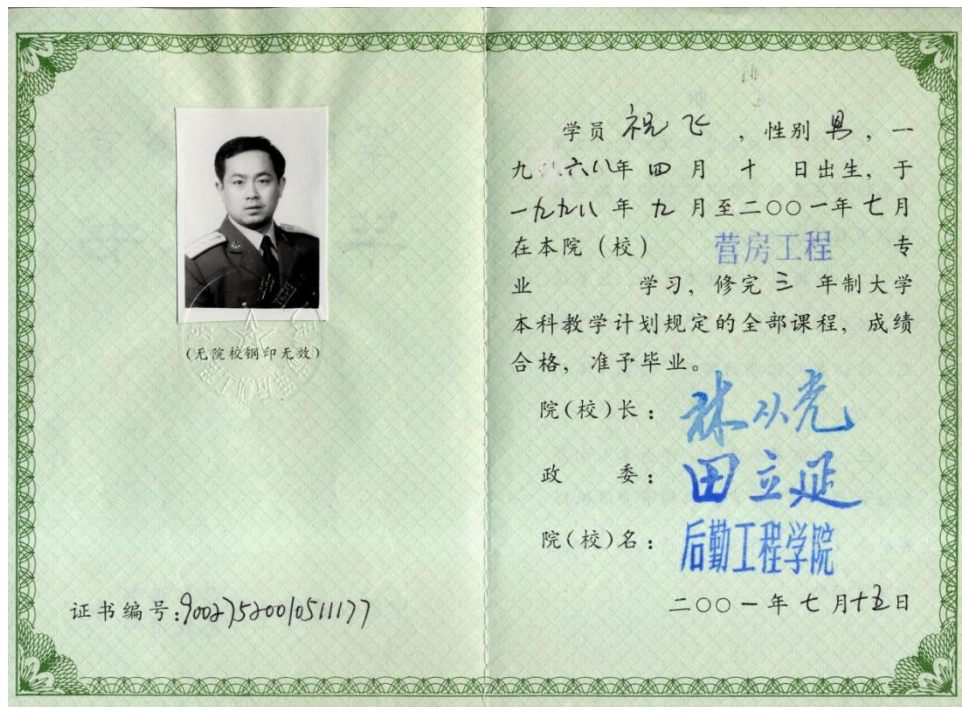 (无院校钢印无效)
证书编号:90027520010511177
学员 祝飞 ,性别 男,一
九六八年 四 月 十 日出生,于
一九九八 年 九 月至二〇〇一年七月
在本院(校) 营房工程 专
业 学习,修完 三 年制大学
本科教学计划规定的全部课程,成绩
合格,准予毕业。
院(校)长: 林从光
政 委: 田立延
院(校)名: 后勤工程学院
二〇〇一年 七 月十五日